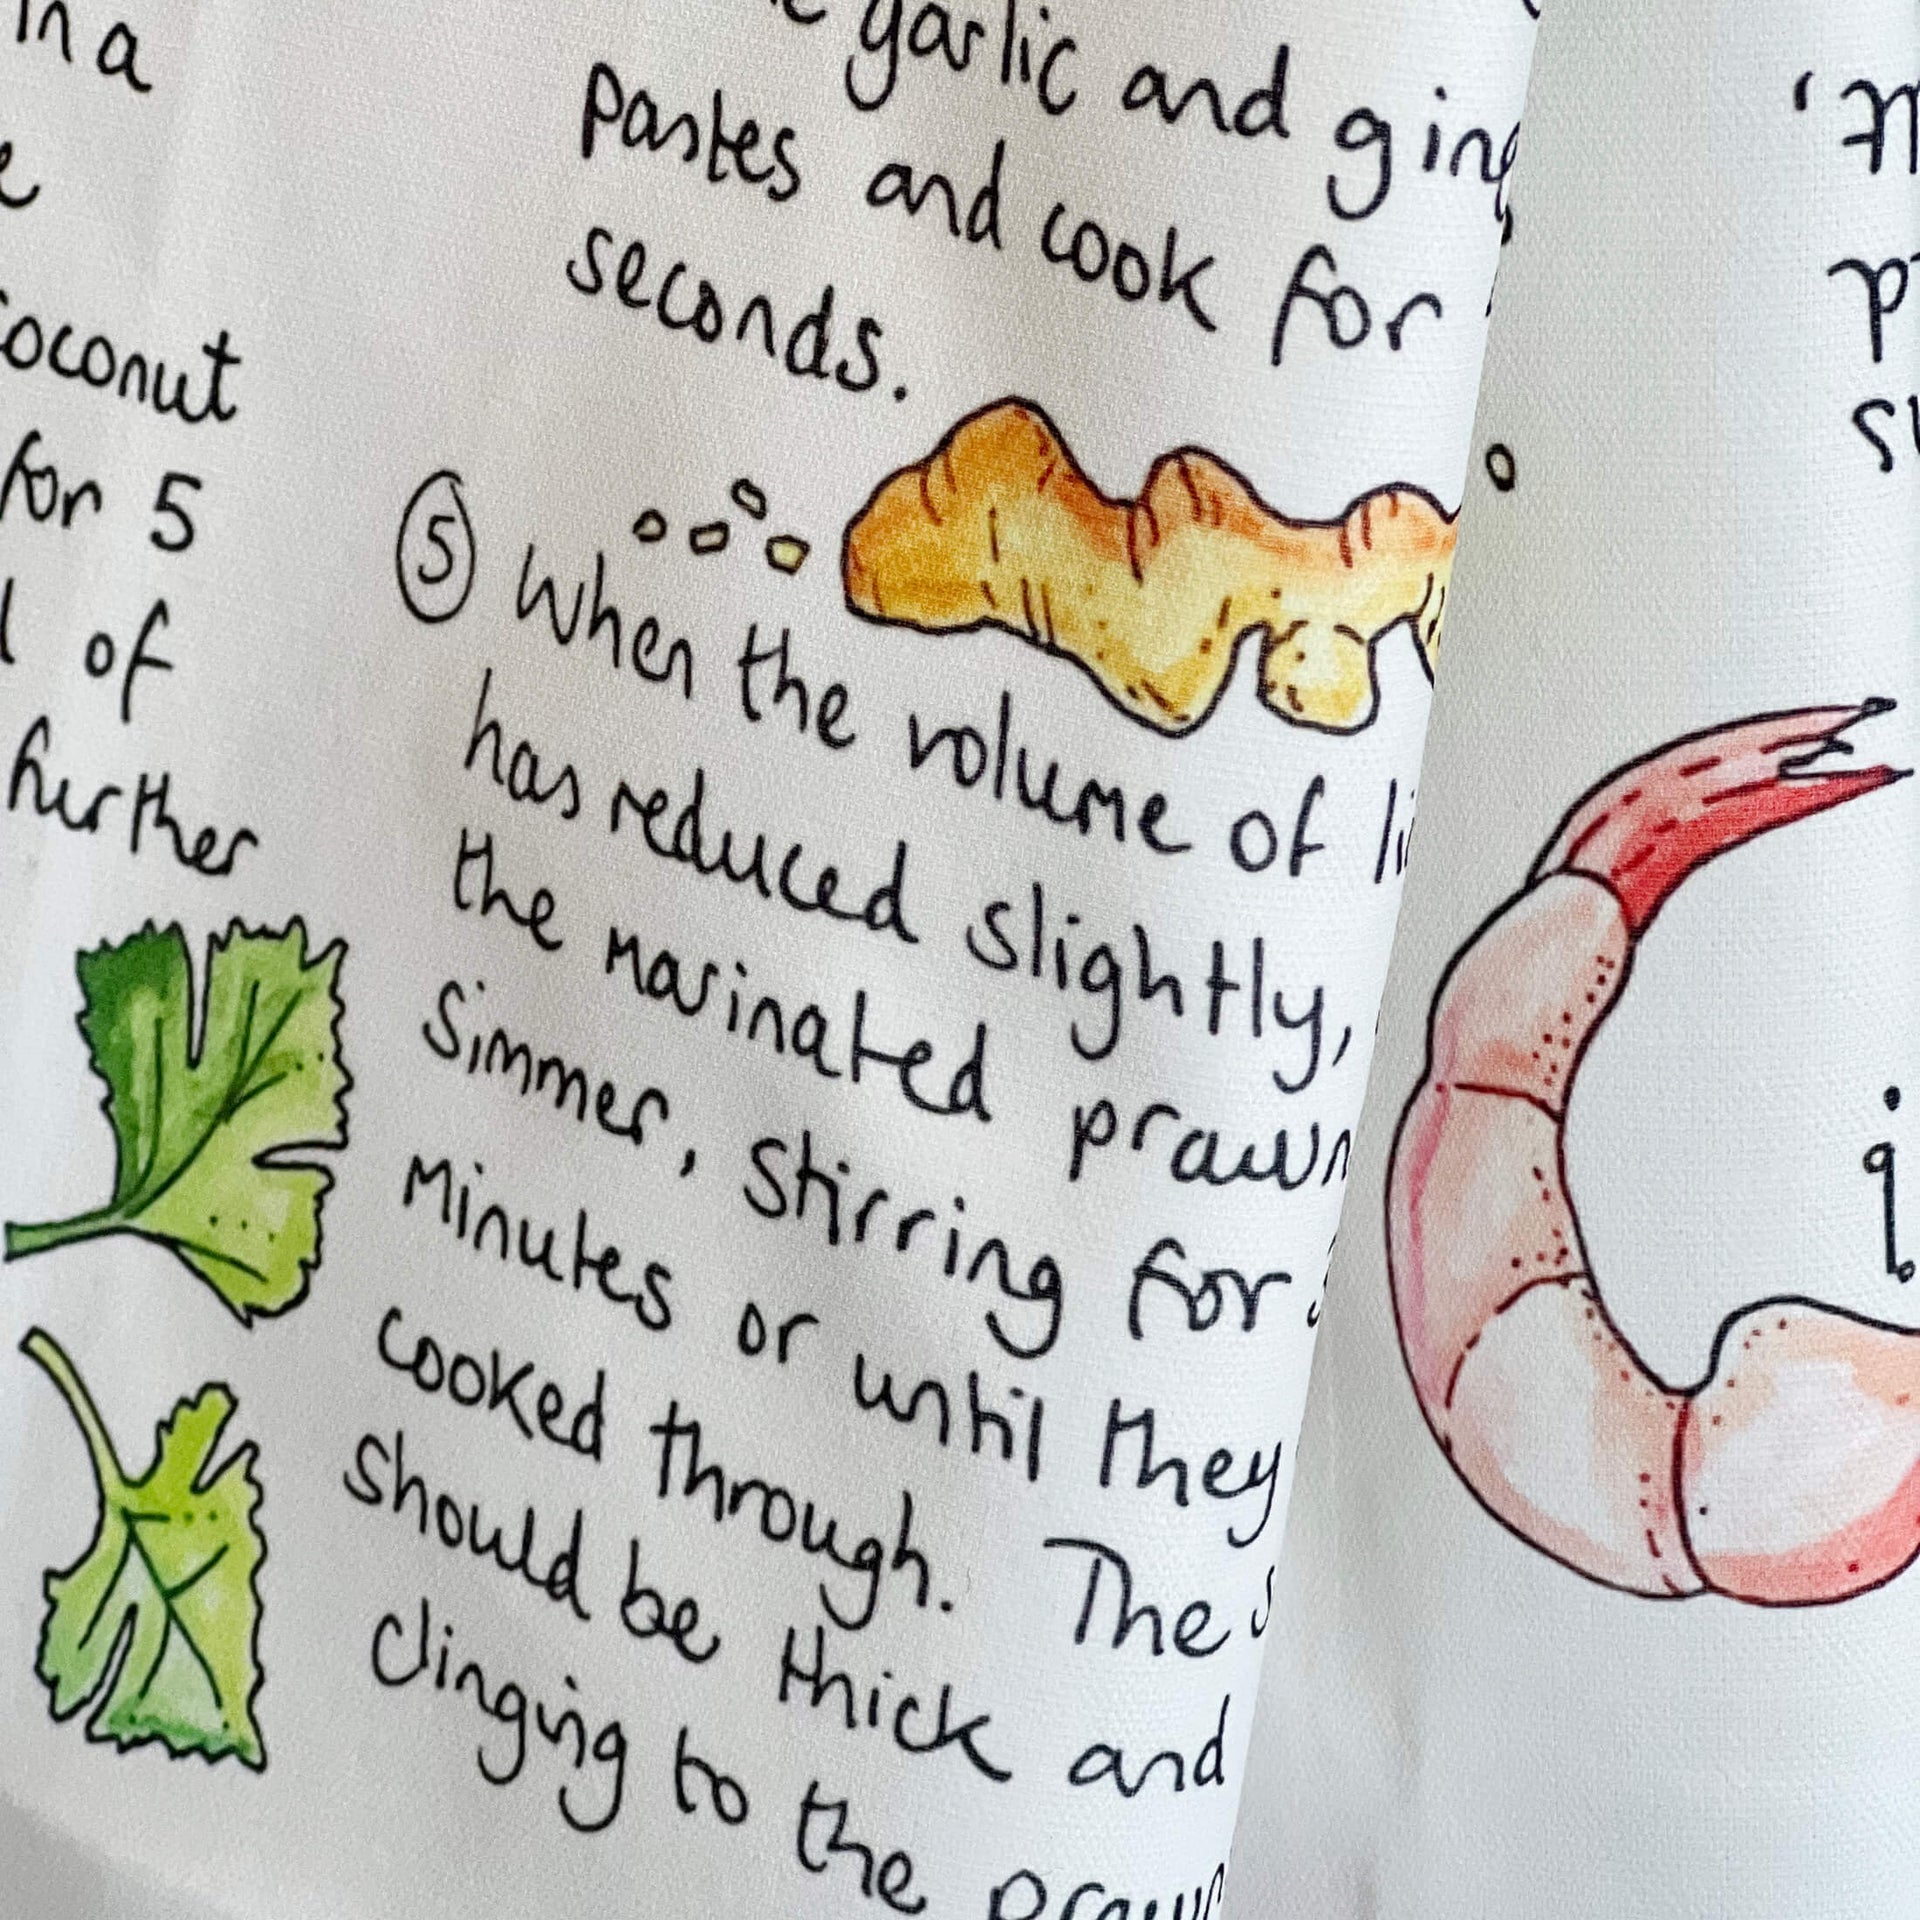 in a
coconut
for 5
of
further
garlic and
pastes and cook for
seconds.
5 When the volume of
has reduced slightly,
the marinated
simmer, stirring for
minutes or until they
cooked through. The
should be thick and
clinging to the